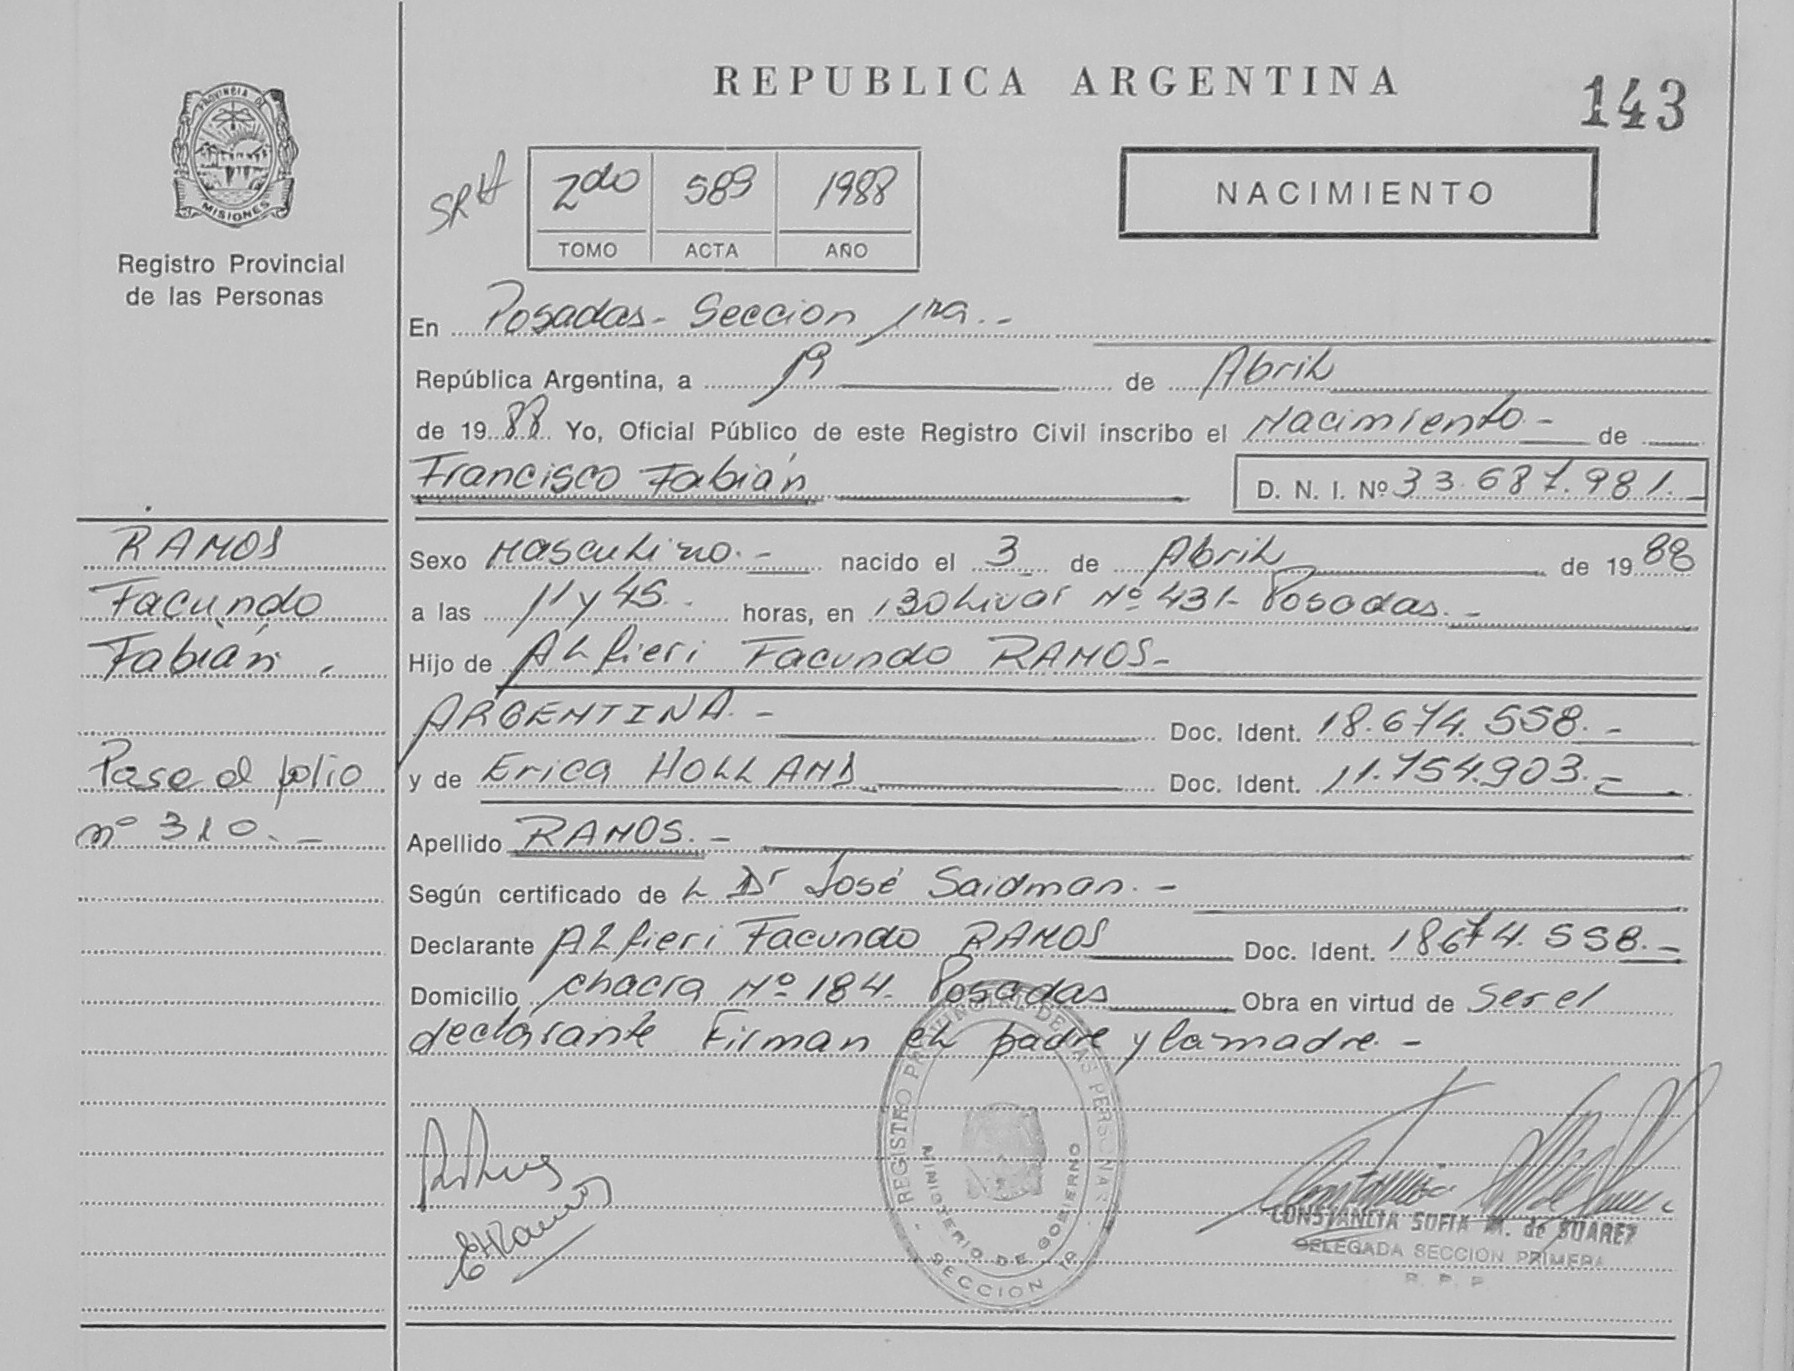 REPUBLICA ARGENTINA
143
PROVINCIA DE
MISIONES
Registro Provincial
de las Personas
2do 589 1988
TOMO ACTA AÑO
NACIMIENTO
En Posadas - Seccion 1ra. -
República Argentina, a de Abril
de 19 88 Yo, Oficial Público de este Registro Civil inscribo el Nacimiento - de
Francisco Fabián D. N. I. Nº 33.687.981. -
RAMOS
Facundo
Fabián.
Pase al folio
nº 310. -
Sexo Masculino. - nacido el 3 de Abril de 19 88
a las 11 y 45. horas, en Bolivar Nº 431 - Posadas. -
Hijo de Alfieri Facundo RAMOS -
ARGENTINA. - Doc. Ident. 18.674.558. -
y de Erica HOLLAND Doc. Ident. 11.754.903. -
Apellido RAMOS. -
Según certificado de L Dr José Saidman. -
Declarante Alfieri Facundo RAMOS Doc. Ident. 18674.558. -
Domicilio chacra Nº 184. Posadas Obra en virtud de ser el
declarante Firman el padre y la madre. -
REGISTRO PROVINCIAL DE LAS PERSONAS
MINISTERIO DE GOBIERNO
SECCION 1a
CONSTANCIA SOFIA M. de SUAREZ
DELEGADA SECCION PRIMERA
R. P. P